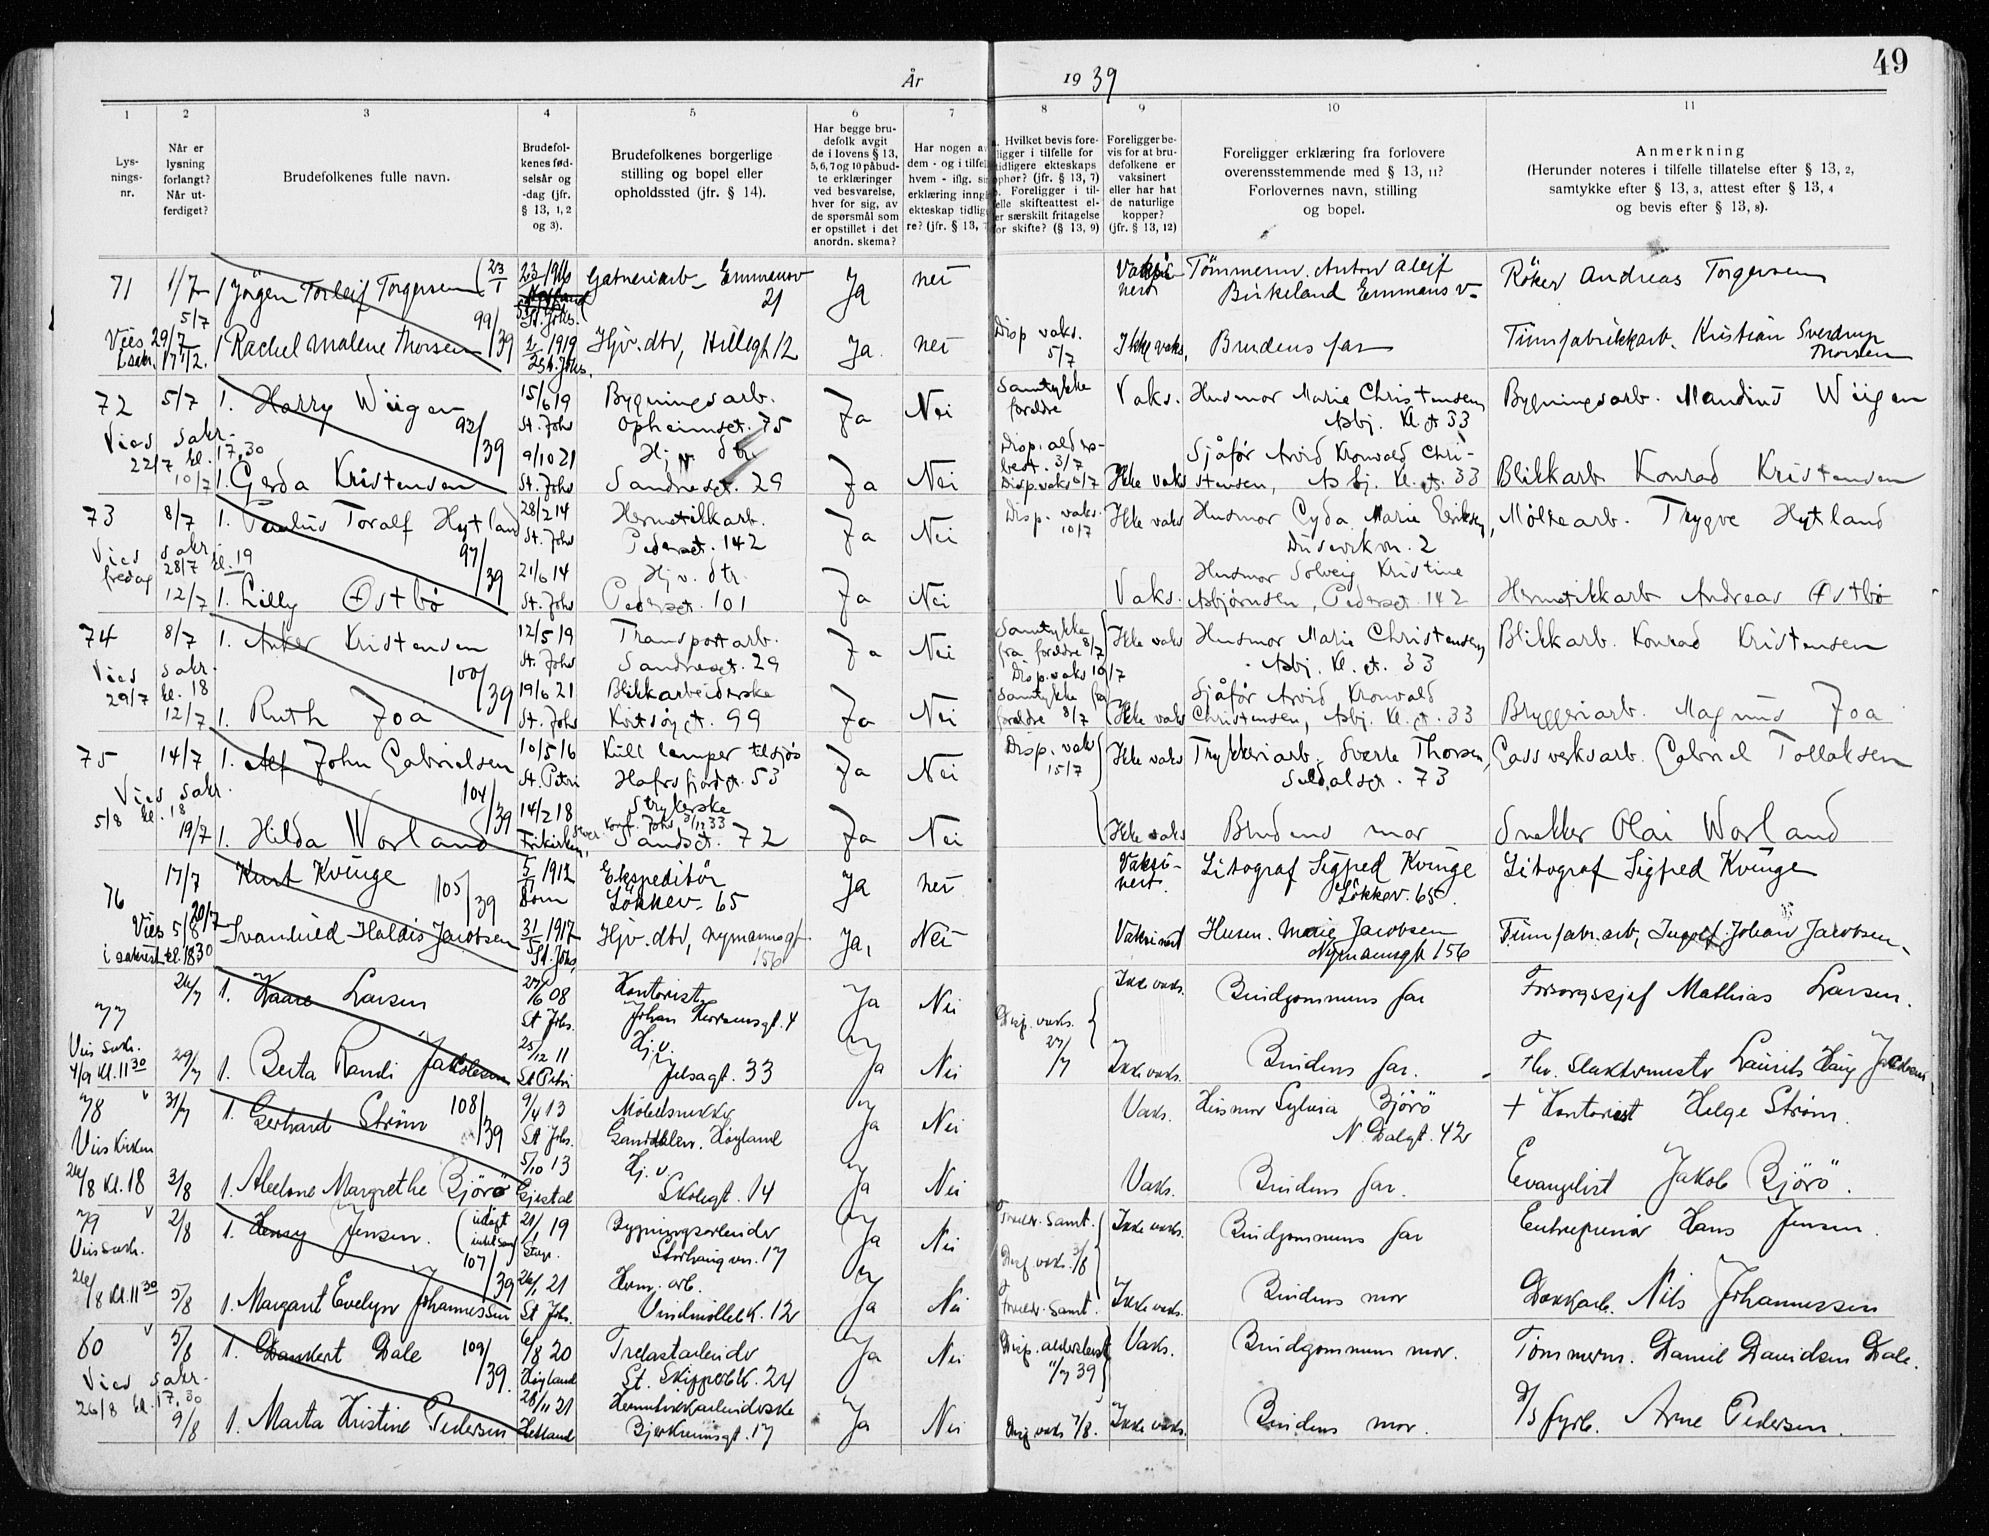 49
År 1939
1 2 3 4 5 6 7 8 9 10 11
Lys-
nings-
nr.
Når er
lysning
forlangt?
Når ut-
ferdiget?
Brudefolkenes fulle navn.
Brudefol-
kenes fød-
selsår og
-dag (jfr.
§ 13, 1, 2
og 3).
Brudefolkenes borgerlige
stilling og bopel eller
opholdssted (jfr. § 14).
Har begge bru-
defolk avgit
de i lovens § 13,
5, 6, 7 og 10 påbud-
te erklæringer
ved besvarelse,
hver for sig, av
de spørsmål som
er opstillet i det
anordn. skema?
Har nogen av
dem - og i tilfelle
hvem - iflg.
erklæring inngå
ekteskap tidlig
re? (jfr. § 13, 7
Hvilket bevis fore-
ligger i tilfelle for
tidligere ekteskaps
ophør? (jfr. § 13, 7)
Foreligger i til-
felle skifteattest el-
er særskilt fritagelse
for skifte? (§ 13, 9)
Foreligger be-
vis for at bru-
defolkene er
vaksinert
eller har hat
de naturlige
kopper?
(jfr. § 13, 12)
Foreligger erklæring fra forlovere
overensstemmende med § 13, 11?
Forlovernes navn, stilling
og bopel.
Anmerkning
(Herunder noteres i tilfelle tillatelse efter § 13, 2,
samtykke efter § 13, 3, attest efter § 13, 4
og bevis efter § 13, 8).
71 1/7 Jörgen Torleif Torgersen 23/1 1916 Gartneriarb. Emmausv Ja nei Vaksi- Tömmerm. Anton Alejf Röker Andreas Torgersen
5/7 99/39 St. Johs. 21 nert Birkeland Emmaus v.
Vies 29/7 Rachel Malene Thorsen 1919 Hjv. dtr, Hilligt 12 Ja nei Disp vaks. 5/7 Ikke vaks, Brudens far Tinnfabrikkarb. Kristian Sverdrup
i sakr. 17 1/2. St. Johs. Thorsen
72 5/7 1. Harry Wiigen 15/6 19 Bygningsarb. Ja Nei Samtykke Vaks. Husmor Marie Christensen, Bygningsarb. Mandius Wiigen
92/39 St. Johs Opheimsgt. 75 foreldre Asbj. Kl. gt 33
Vies sakr. 22/7 kl. 17,30 9/10 21 Hj. v. dtr. Disp. alders- Sjåfør Arvid Kronvald Chri-
best. 3/7
10/7 1. Gerda Kristensen St. Johs Sandnesgt. 29 Ja Nei Disp. vaks 6/7 Ikke vaks stensen, Asbj. Kl. gt. 33 Blikkarb Konrad Kristensen
73 8/7 1. Paulus Toralf Hytland 28/2 14 Hermetikkarb. Ja Nei Disp. vaks. Ikke vaks Husmor Gyda Marie Eriksen, Møllearb. Trygve Hytland
97/39 St. Johs Pedersgt. 142 10/7 Dusevikvn. 2
Vies sakr. fredag 28/7 kl. 19 21/6 14 Hj. v. dtr. Husmor Solveig Kristine
12/7 1. Lilly Østbø St. Johs Pedersgt. 101 Ja Nei Vaks. Asbjørnsen, Pedersgt. 142 Hermetikkarb Andreas Østbø
74 8/7 1. Anker Kristensen 12/5 19 Transportarb. Ja Nei Samtykke Ikke vaks Husmor Marie Christensen, Blikkarb. Konrad Kristensen
100/39 St. Johs Sandnesgt. 29 fra foreldre 8/7 Asbj. Kl. gt. 33
Disp. vaks 10/7
Vies sakr. 29/7 kl. 18 19/6 21 Blikkarbeiderske Samtykke fra Sjåfør Arvid Kronvald
12/7 1. Ruth Joa St. Johs Kirtsøygt. 99 Ja Nei foreldre 8/7 Ikke vaks Christensen, Asbj. Kl. gt. 33 Bryggeriarb. Magnus Joa
75 14/7 1. Alf John Gabrielsen 10/5 16 Kull lemper tilsjøs Ja Nei Disp. vaks Ikke vaks Trykkeriarb. Sverre Thorsen, Gassverksarb. Gabriel Tollaksen
104/39 St. Petri Hafrsfjordgt. 53 15/7 Suldalsgt. 73
Vies sakr. 5/8 kl. 18 14/2 18 Strykerske
Konf. Johs 3/12 33
19/7 1. Hilda Worland Frikirken Sandsgt. 72 Ja Nei Ikke vaks Brudens mor Snekker Olai Worland
76 17/7 Kurt Kvinge 1912 Ekspeditør Ja nei Vaksi- Litograf Sigfred Kvinge Litograf Sigfred Kvinge
105/39 Dom Løkkev. 65 nert. Løkkev. 65.
20/7
Vies 5/8 Svanhild Haldis Jacobsen 1917 Hjv. dtr, Nymannsgt Ja, Nei Vaksinert Husm. Marie Jacobsen Tinnfabr. arb, Ingolf Johan Jacobsen
i sakrist. kl. 1830 St. Johs, 156 Nymannsgt 156
77 24/7 1. Kaare Larsen 08 Kontorist Ja Nei Ikke vaks. Brudgommens far Forsorgssjef Mathias Larsen.
St Johs. 4 Disp. vaks. 27/7
Vies sakr. 25/12 11 Hj. v.
4/9 Kl. 11 30 29/7 1. Berta Randi Jakobsen St Petri Jelsagt. 33 Ja Nei Ikke vaks. Brudens far. Slaktermester Laurits
78 31/7 1. Gerhard Strøm 9/4 13 Møbelsnekker Ja Nei Vaks. Husmor Sylvia Bjørø + Kontorist Helge Strøm.
108/39 St Johs. Høyland N. Dalgt. 42
Vies Kirken 5/10 13 Hj. v.
26/8 Kl. 18 3/8 1. Abelone Margrethe Bjørö Gjestal Skolegt. 14 Ja Nei Vaks. Brudens far. Evangelist Jakob Bjørö.
79 2/8 1. Henry Jensen. 21/1 19 Bygningsarbeider Ja Nei Foreldr. Samt. Ikke vaks. Brudgommens far Entreprenør Hans Jensen.
Vies sakr. 107/39 Storhaugvn. 17 Disp. vaks.
26/8 Kl. 11 30 5/8 1. Margarit Evelyn Johannessen 26/1 21 Herm. arb. Ja Nei Foreldr. Samt. Ikke vaks. Brudens mor Nils Johannessen
St Johs. Vindmøllebk. 12
80 5/8 1. Dankert Dale 109/39. 6/8 20 Trelastarbeider Ja Nei Disp. aldersbest Vaks. Brudgommens mor. Tömmerm. Daniel Davidsen Dale.
Høyland St. Skipperbk. 24 11/7 39
Vies sakr. 26/8 kl. 17,30 28/11 21 Hermetikkarbeiderske
9/8 1. Marta Kristine Pedersen Hetland Bjerkreimsgt. 17 Ja Nei Disp vaks 7/8. Ikke vaks. Brudens mor. D/S fyrb. Arne Pedersen.